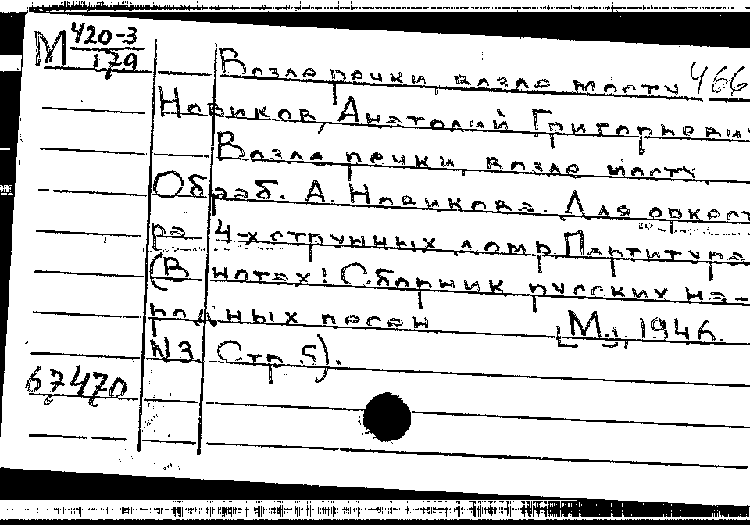 М 420-3
179
Возле речки, возле мосту 466
Новиков, Анатолий Григорьевич
Возле речки, возле мосту.
Обраб. А. Новикова. Для оркест
ра 4-х струнных домр. Партитура
(В нотах: Сборник русских на-
родных песен [М.], 1946.
N3 Стр. 5).
67470